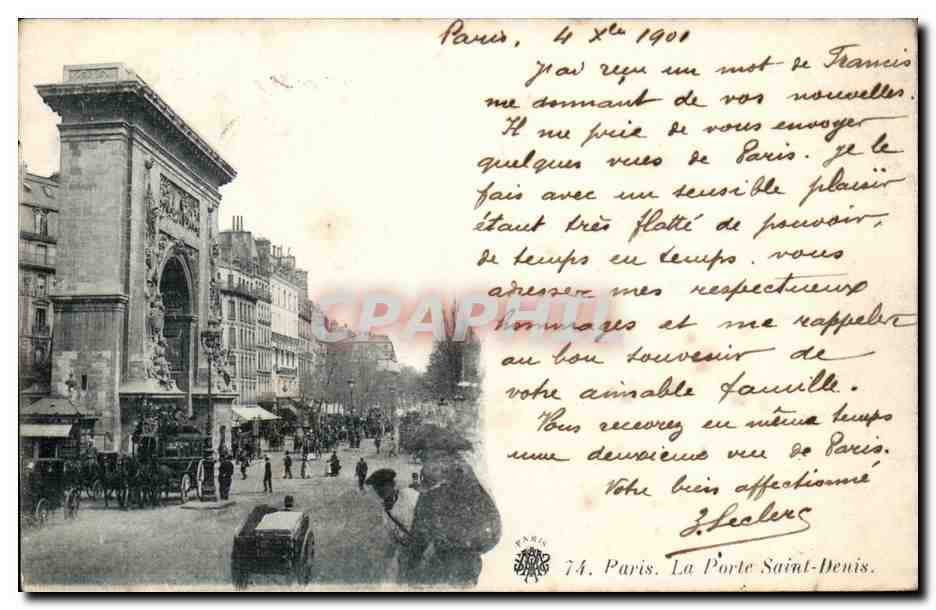 Paris, 4 Xbre 1901
J'ai reçu un mot de Francis
me donnant de vos nouvelles.
Il me prie de vous envoyer
quelques vues de Paris. Je le
fais avec un sensible plaisir
étant très flatté de pouvoir,
de temps en temps, vous
adresser mes respectueux
hommages et me rappeler
au bon souvenir de
votre aimable famille.
Vous recevrez en même temps
une deuxième vue de Paris.
Votre bien affectionné
J. Leclerc
CPAPHIL
PARIS
74. Paris. La Porte Saint-Denis.